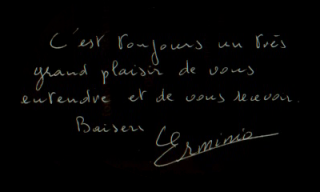 C'est toujours un très
grand plaisir de vous
entendre et de vous recevoir.
Baisers
Erminia